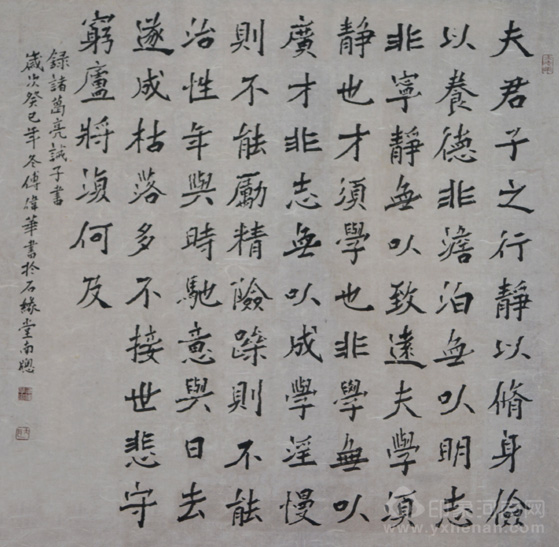 夫君子之行靜以脩身儉
以養德非澹泊無以明志
非寧靜無以致遠夫學須
靜也才須學也非學無以
廣才非志無以成學淫慢
則不能勵精險躁則不能
治性年與時馳意與日去
遂成枯落多不接世悲守
窮廬將復何及
録諸葛亮誡子書
歲次癸巳年冬傅華書於石緣堂南
印象河南网
www.yxhenan.com